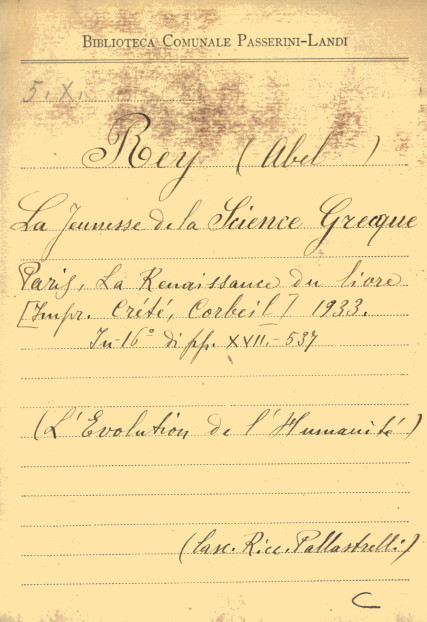 BIBLIOTECA COMUNALE PASSERINI-LANDI
5. X.
Rey (Abel)
La Jeunesse de la Science Grecque
Paris, La Renaissance du livre
[Impr. Crété, Corbeil] 1933.
In-16° di pp. XVII.-537
(L'Evolution de l'Humanité)
(Lasc. Ricc. Pallastrelli)
C